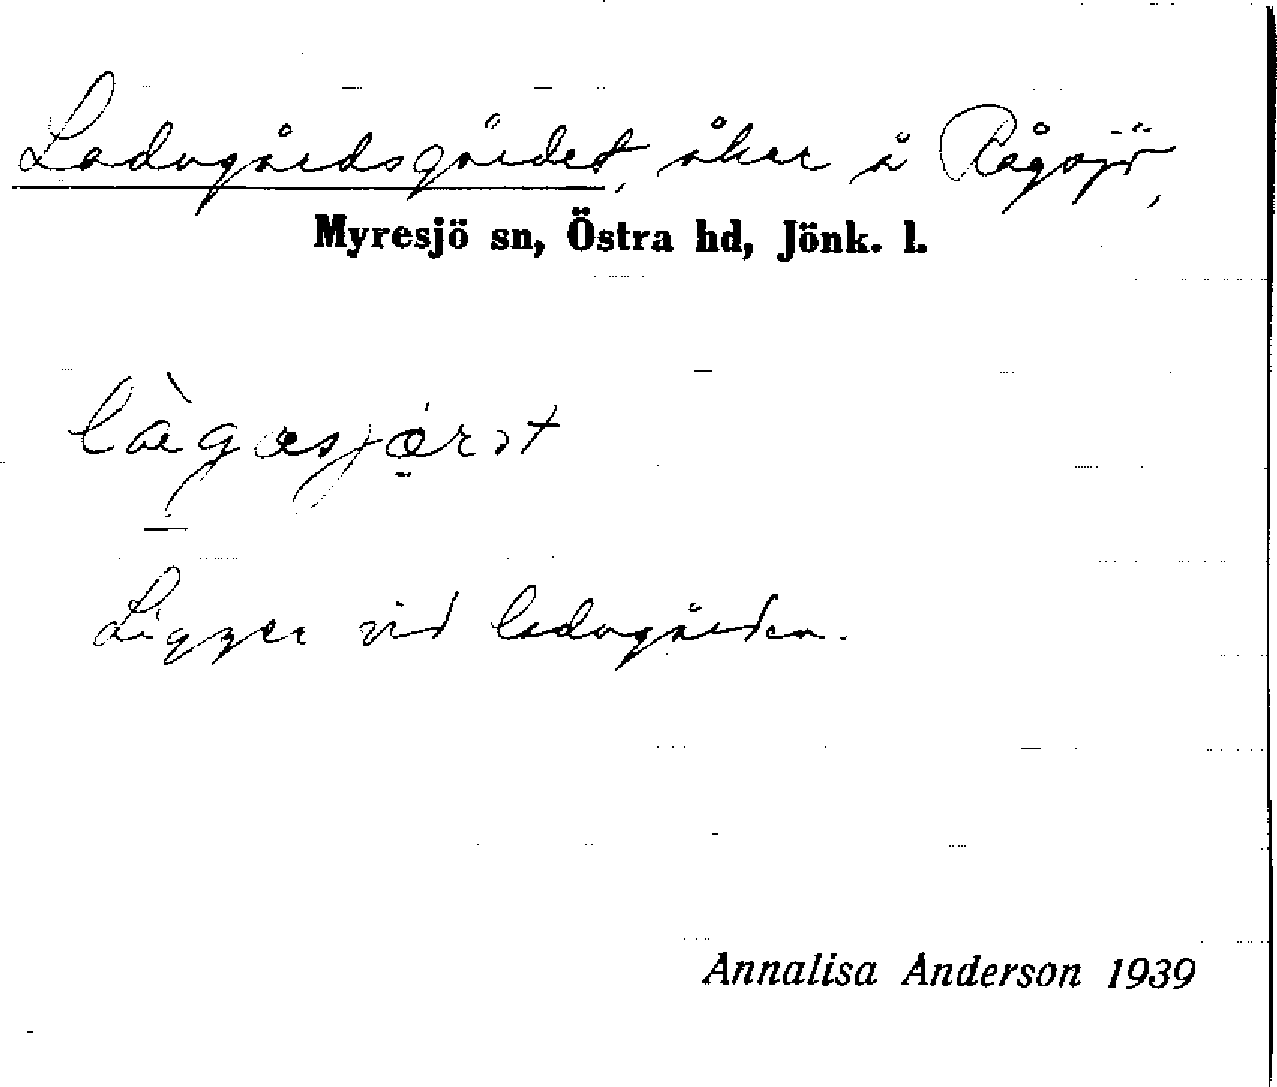 Ladugårdsgärdet, åker å Rågsjö,
Myresjö sn, Östra hd, Jönk. l.
Ligger vid ladugården.
Annalisa Anderson 1939